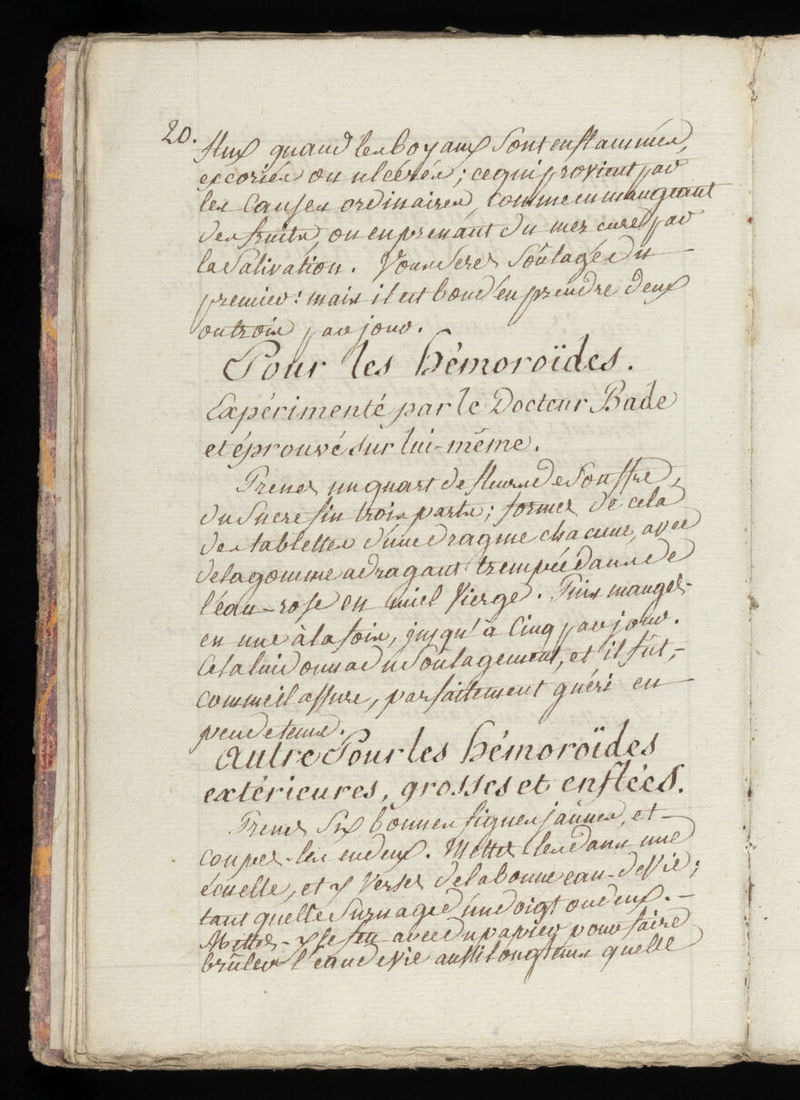 20.
flux quand les boyaux sont enflammés,
excoriés ou ulcérés; ce qui provient par
les causes ordinaires, comme en mangeant
des fruits, ou en prenant du mercure par
la Salivation. Vous serez soûlagé du
premier: mais il est bon d'en prendre deux
ou trois par jour.
Pour les hémoroïdes.
Expérimenté par le Docteur Bade
et éprouvé sur lui-même.
Prenez un quart de fleurs de Souffre,
du Sucre fin trois parts; formez de cela
des tablettes d'une dragme chacune, avec
de la gomme adragant trempée dans de
l'eau-rose en miel Vierge. Puis mangez-
en une à la fois, jusqu'à Cinq par jour.
Cela lui donna du Soulagement, et il fût,
comme il assure, parfaitement guéri en
peu de tems.
Autre Pour les hémoroïdes
extérieures, grosses et enflées.
Prenez Six bonnes figues jaunes, et
coupez-les en deux. Mettez-les dans une
écuelle, et y Versez de la bonne eau-de Vie;
tant quelle Surnage d'un doigt ou deux.
Mettez-y le feu avec du papier pour faire
brûler l'eau de Vie aussi longtems quelle